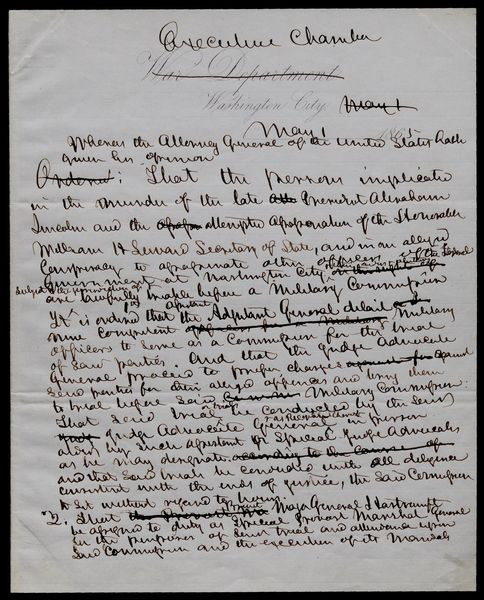 Executive Chamber
War Department
Washington City, May 1
May 1 1865
Whereas the Attorney General of the United States hath
given his opinion
Ordered: That the persons implicated
in the murder of the late President Abraham
Lincoln and the attempted assassination of the Honorable
William H Seward Secretary of State, and in an alleged
Conspiracy to assassinate other officers of the Federal
Government at Washington City
are lawfully triable before a Military Commission
It is ordered that the Adjutant General detail
nine competent Military
officers to serve as a Commission for the trial
of said parties. And that the Judge Advocate
General proceed to prefer charges against
said parties for their alleged offences and bring them
to trial before said Military Commission:
That said trial be conducted by the said
Judge Advocate General in person
aided by such Assistant or Special Judge Advocates
as he may designate according to the course of
and that said trial be conducted with all diligence
consistent with the ends of justice, the said Commission
to sit without regard to hours.
2. That Major General Hartranft
be assigned to duty as Special Provost Marshal General
for the purposes of said trial and attendance upon
said Commission and the execution of its Mandates